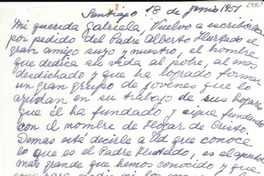 Santiago 18 de junio 1951
Mi querida Gabriela, Vuelvo a escribirle
por pedido del Padre Alberto Hurtado el
gran amigo suyo y nuestro, el hombre
que dedica su vida al pobre, al más
desdichado y que ha logrado formar
un gran grupo de jóvenes que lo
ayudan en su trabajo de sus hogares
que él ha fundado y sigue fundando
con el nombre de Hogar de Cristo.
Demás está decirle a Ud que conoce
lo que es el Padre Hurtado, es el apóstol
más grande que hemos conocido y que